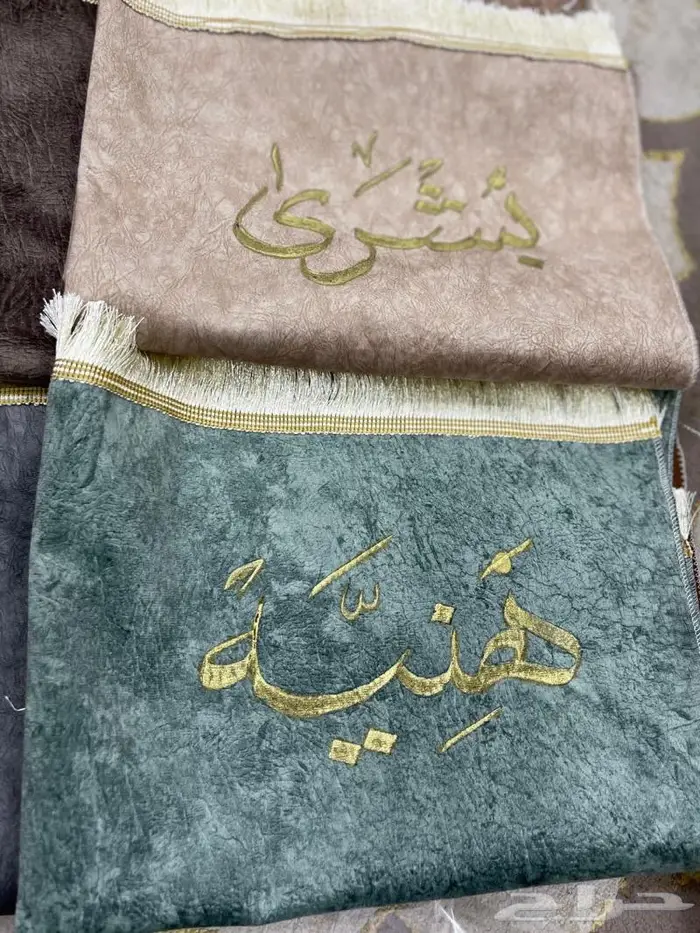 بُشْرَىٰ
هَنِيَّة
حراج